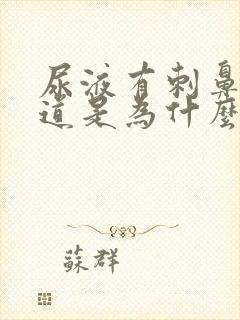 尿液有刺鼻
道是為什麼
蘇群